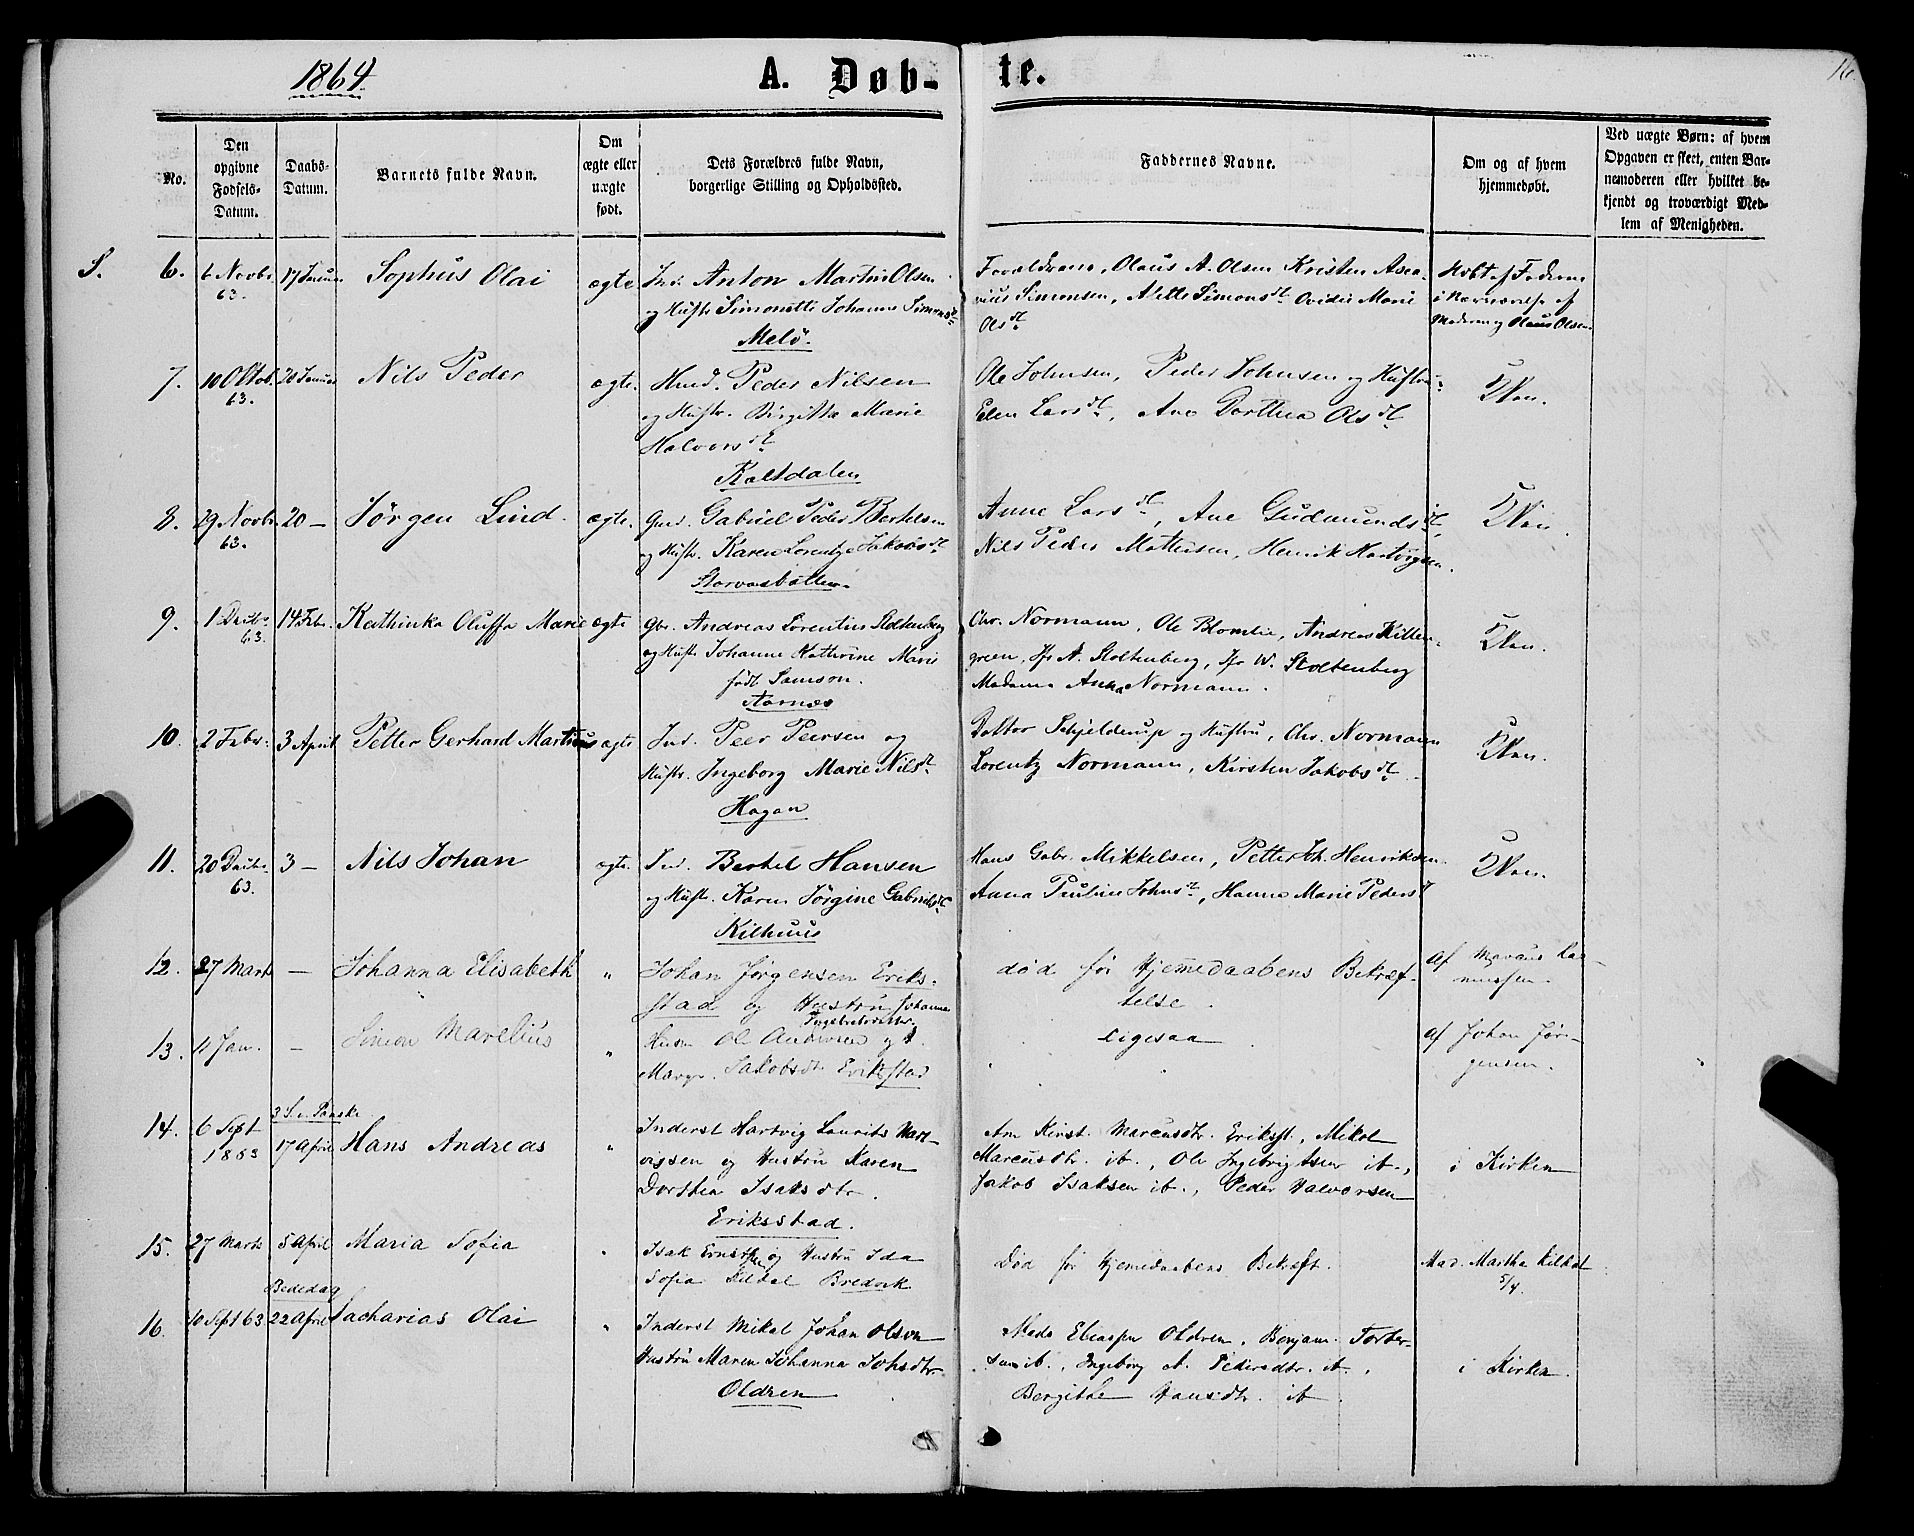 1864 A. Døb- te. 16
No.
Den opgivne Fødsels-Datum.
Daabs-Datum.
Barnets fulde Navn.
Om ægte eller uægte født.
Dets Forældres fulde Navn, borgerlige Stilling og Opholdssted.
Faddernes Navne.
Om og af hvem hjemmedøbt.
Ved uægte Børn: af hvem Opgaven er skeet, enten Barnemoderen eller hvilket bekjendt og troværdigt Medlem af Menigheden.
S. 6. 6 Novbr 63. 17 Januar Sophus Olai ægte Ind. Anton Martin Olsen
og Hustr Simonette Johanna Simonsdt
Melö.
Forældrene, Olaus A. Olsen Kristen Asca-
nius Simonsen, Mette Simonsdt Ovidie Marie
Olsdt
Hdbt af Faderen
i Nærværelse af
Moderen og Olaus Olsen
7. 10 Oktob. 63. 20 Januar Nils Peder ægte. Hmd. Peder Nilsen
og Hustr. Birgitta Marie
Halvorsdt
Kaltdalen
Ole Johnsen, Peder Johnsen og Hustru
Elen Larsdt, Ane Dorthea Olsdt
8. 29 Novbr 63. 20 — Jörgen Lind. ægte. Gmd. Gabriel Peder Bertelsen
og Hustr. Karen Lorentze Jakobsdt
Storvasbotten.
Anne Larsdt, Ane Gudmundsdt,
Nils Peder Mathisen, Henrik Hartvigsen.
9. 1 Decbr 63. 14 Febr. Kathinka Oluffa Marie ægte Gbr. Andreas Lorentius Stoltenberg
og Hustr Johanne Kathrine Marie
født Samson.
Aarnæs
Chr. Normann, Ole Blomlie, Andreas Killen-
green, Jfr A. Stoltenberg, Jfr W. Stoltenberg
Madame Anna Normann.
10. 2 Febr. 3 April Petter Gerhard Martinus ægte Ind. Peer Peersen og
Hustr. Ingeborg Marie Nilsdt
Hagan
Doktor Schjelderup og Hustru, Chr. Normann
Lorentz Normann, Kirsten Jakobsdt
11. 20 Decbr. 63. 3 — Nils Johan ægte. Ind. Bertel Hansen
og Hustr. Karen Jörgine Gabrielsdt
Kilhuus
Hans Gabr. Mikkelsen, Petter Joh. Henriksen
Anna Pauline Johnsdt, Hanna Marie Pedersdt
12. 27 Marts — Johanna Elisabeth " Johan Jørgensen Eriks-
stad og Hustru Johanna
død før Hjemmedaabens Bekræf-
telse.
af Marcus Ras-
mussen.
13. 11 Jan. — Simon Marelius " Husm Ole Andersen og
Margr. Jakobsdtr Erikstad
ligesaa
af Johan Jør-
gensen.
14. 6 Sept 1863 3 S. e. Paaske 17 April Hans Andreas " Inderst Hartvig Laurits Hart-
vigsen og Hustru Karen
Dorthea Isaksdtr.
Eriksstad.
Ane Kirst. Marcusdtr. Eriksst., Mikal
Marcusdtr. ib., Ole Ingebrigtsen ib.,
Jakob Isaksen ib., Peder Halvorsen
i Kirken
15. 27 Marts 5 April Maria Sofia " Isak og Hustru Ida
Sofia Bredvik
Død før Hjemmedaabens Bekræft.
Mad. Martha
5/4.
16. 10 Sept 63 Bededag 22 April Zacharias Olai " Inderst Mikal Johan Olsen
Hustru Maren Johanna Johsdtr.
Oldren
Mads Eliassen Oldren, Benjam. Torber-
sen ib., Ingeborg A. Pedersdtr. ib.,
Bergithe Hansdtr. ib.
i Kirken.